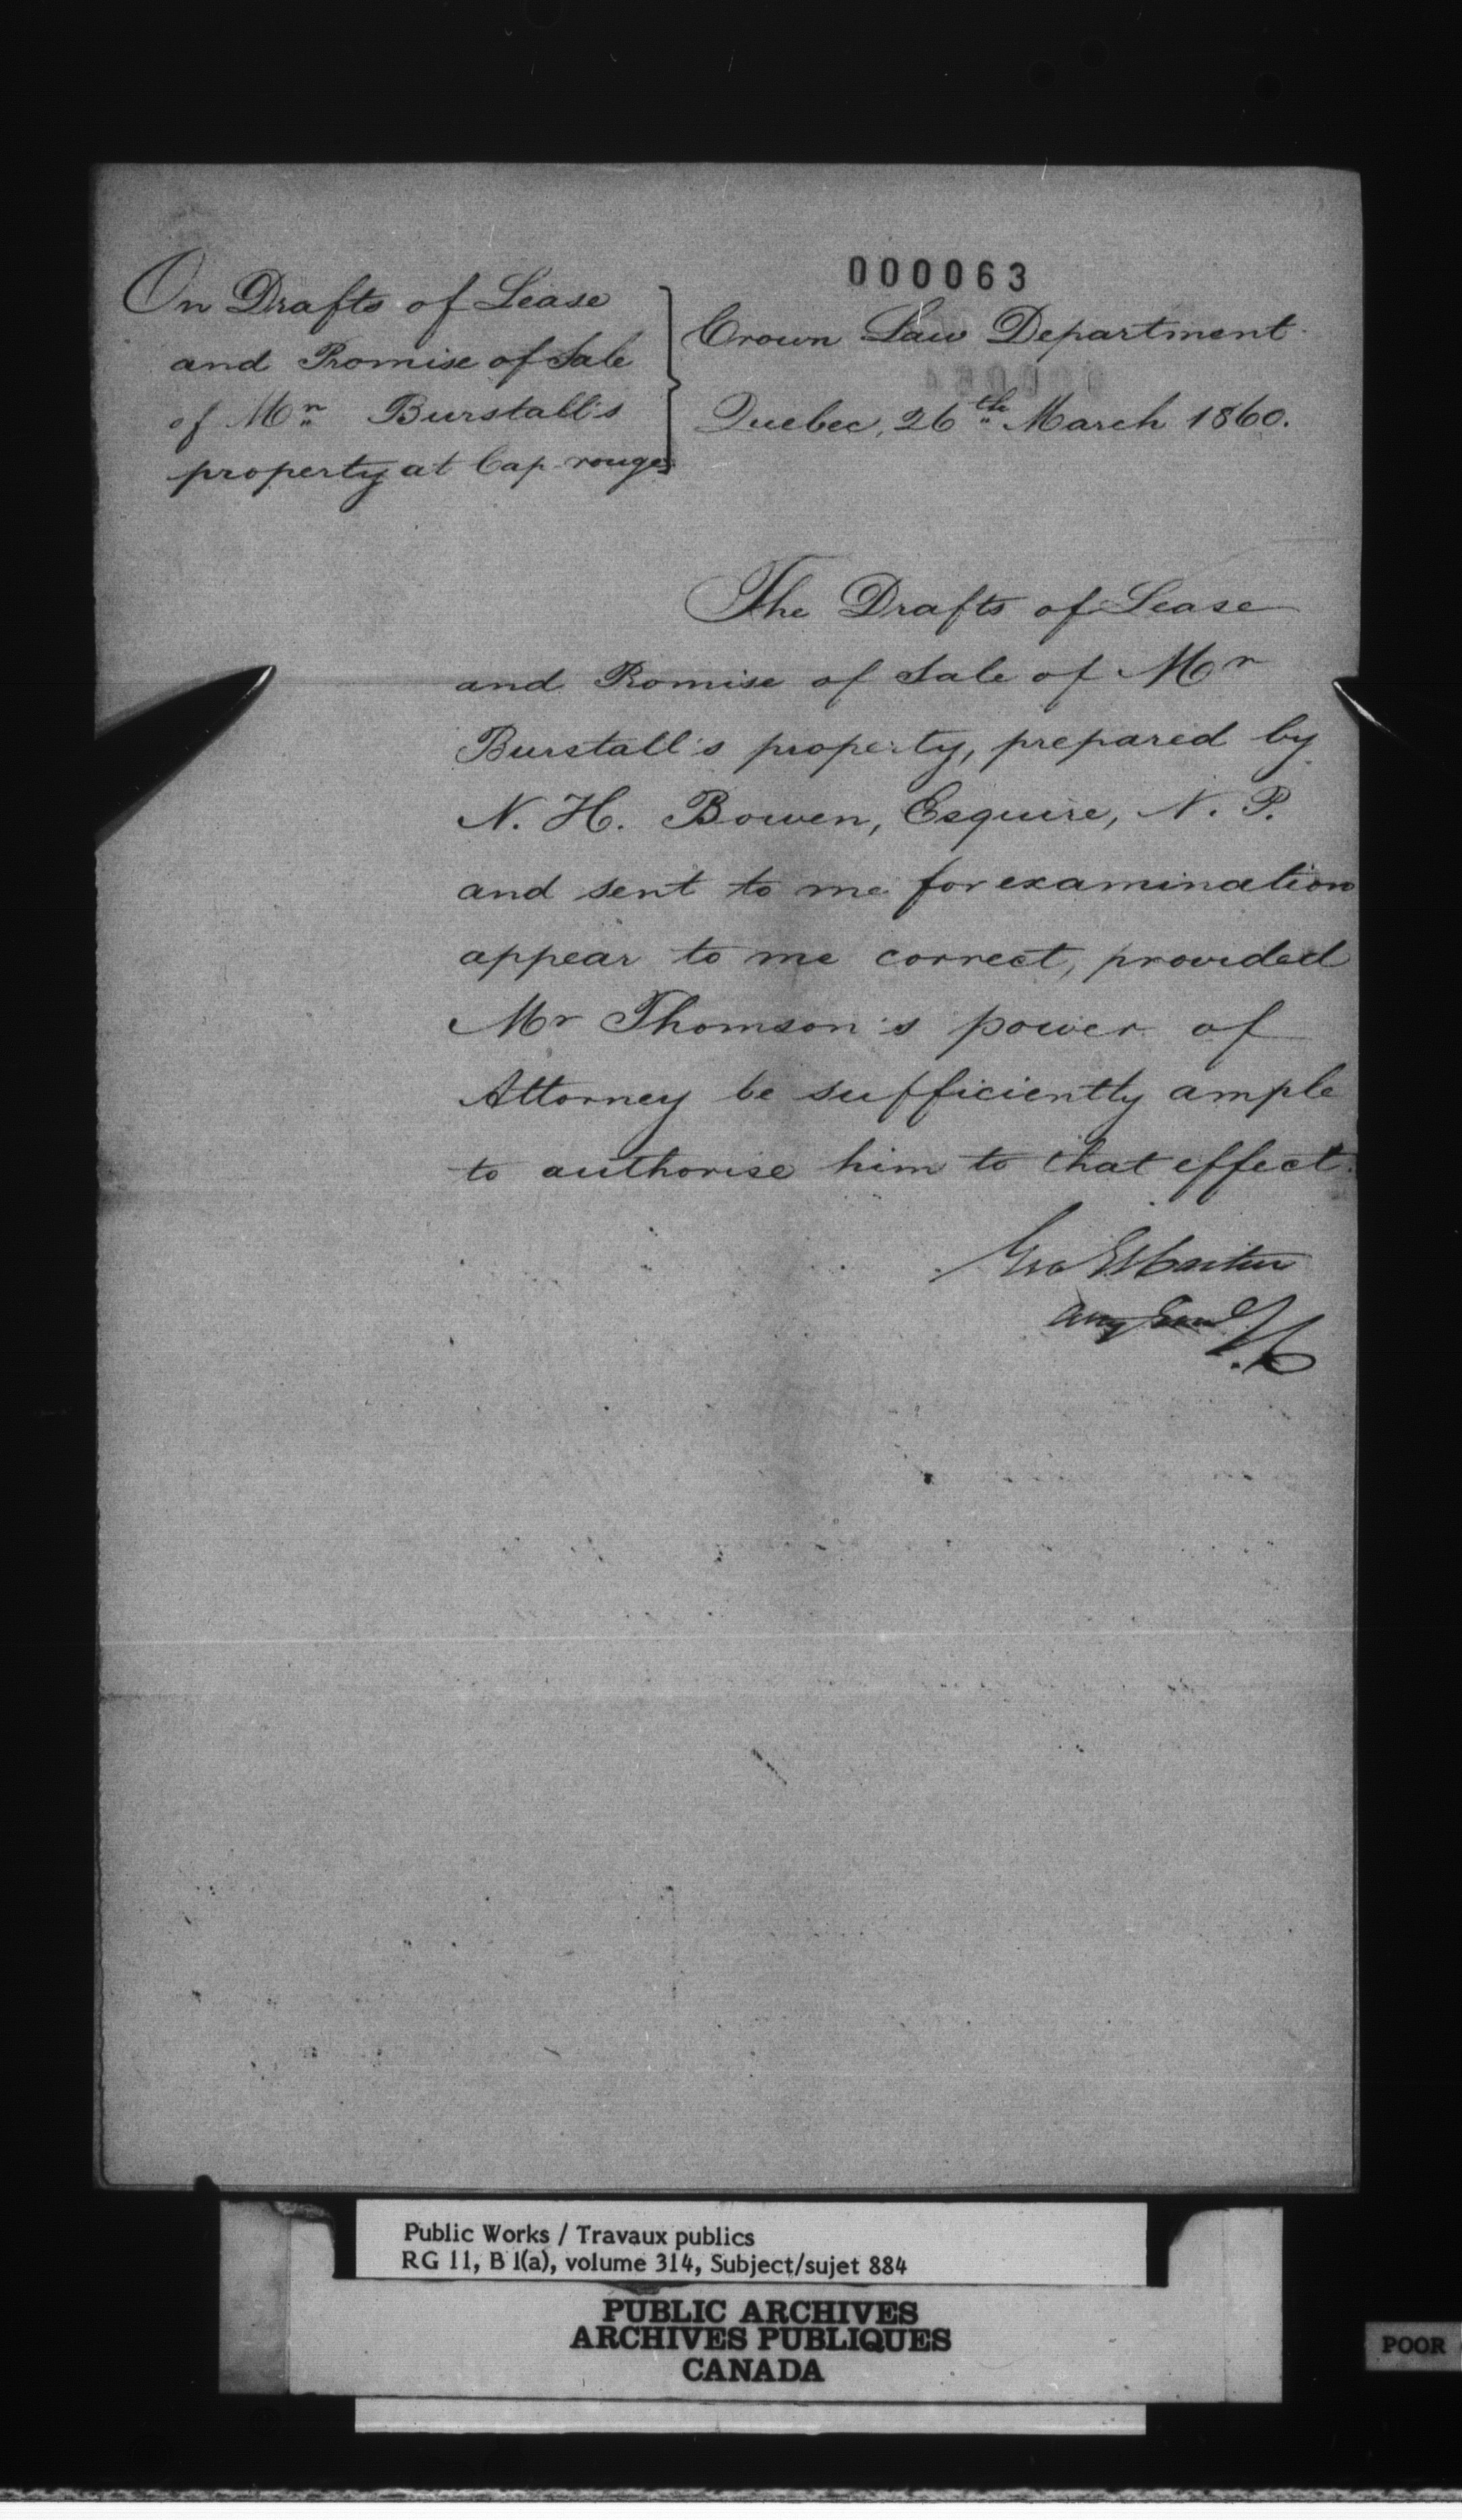 000063
On Drafts of Lease
and Promise of Sale
of Mr. Burstall's
property at Cap-rouge
Crown Law Department
Quebec, 26th March 1860.
The Drafts of Lease
and Promise of Sale of Mr
Burstall's property, prepared by
N. H. Bowen, Esquire, N. P.
and sent to me for examination
appear to me correct, provided
Mr Thomson's power of
Attorney be sufficiently ample
to authorise him to that effect.
Geo E Cartier
Public Works / Travaux publics
RG 11, B 1(a), volume 314, Subject/sujet 884
PUBLIC ARCHIVES
ARCHIVES PUBLIQUES
CANADA
POOR